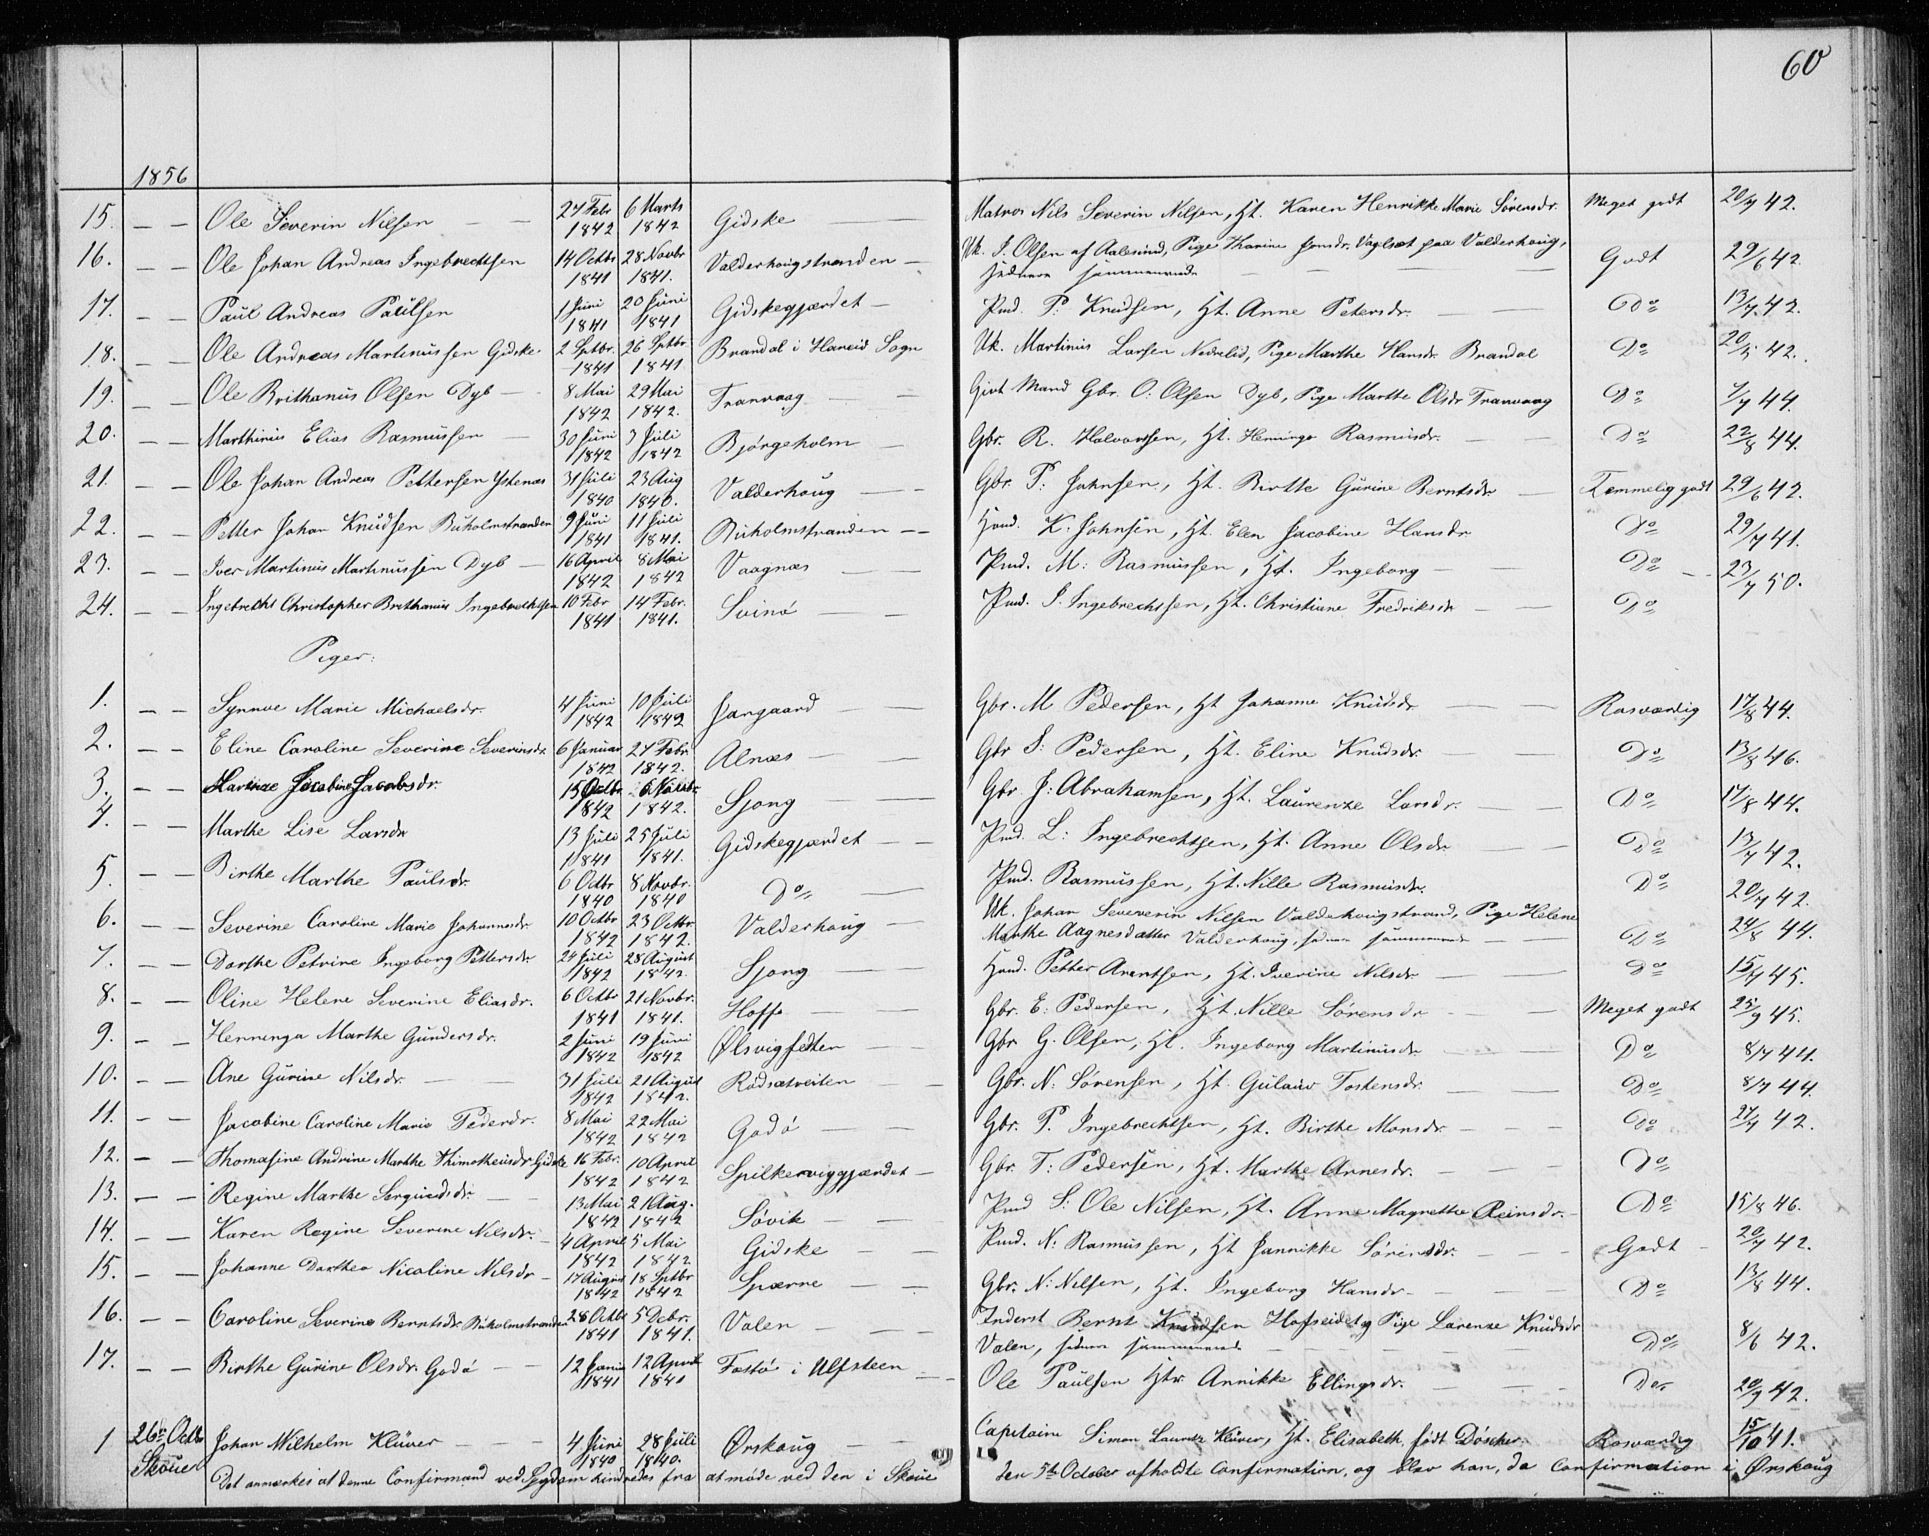 60
1856
15. — — Ole Severin Nilsen — — 27 Febr 1842 6 Marts 1842 Gidske — Matros Nils Severin Nilsen, Ht. Karen Henrikke Marie Sörensdr. Meget godt 20/7 42.
16. — — Ole Johan Andreas Ingebrechtsen 14 Octbr 1841 28 Novbr 1841. Valderhougstranden — Uk. J. Olsen af Aalesund, Pige Karine Jonsdr. Vaglset paa Valderhoug, Godt 29/6 42.
17. — — Paul Andreas Paulsen 1 Juni 1841 20 Juni 1841 Gidskegjærdet — Pmd. P. Knudsen, Ht. Anne Petersdr. — — Do 13/7 42.
18. — — Ole Andreas Martinussen Gidske 2 Sptbr. 1841 26 Sptbr. 1841 Brandal i Hareid Sogn Uk. Martinus Larsen Nedrelid, Pige Marthe Hansdr. Brandal Do 20/5 42.
19. — — Ole Brithanus Olsen Dyb — 8 Mai 1842 29 Mai 1842. Tranvaag — — Givt Mand Gbr. O. Olsen Dyb, Pige Marthe Olsdr Tranvaag Do 7/7 44.
20. — — Marthinus Elias Rasmussen — 30 Juni 1842 3 Juli 1842 Bjørgeholm — Gbr. R. Halvorsen, Ht. Heminge Rasmusdr. — Do 22/8 44.
21. — — Ole Johan Andreas Pettersen Ystenæs 31 Juli 1840 23 Aug 1840. Valderhoug — — Gbr. P. Johnsen, Ht. Birthe Gurine Berntsdr — Temmelig godt 29/6 42.
22. — — Petter Johan Knudsen Buholmstranden 9 Juni 1841 11 Juli 1841. Buholmstranden — — Hmd. K. Johnsen, Ht. Elen Jacobine Hansdr Do 29/7 41.
23. — — Iver Martinus Martinussen Dyb — 16 April 1842 8 Mai 1842 Vaagnæs — — Pmd. M. Rasmussen, Ht. Ingeborg — — Do 23/7 50.
24. — — Ingebrecht Christopher Brithanius Ingebrechtsen 10 Febr 1841 14 Febr. 1841. Svinö — — Pmd. I. Ingebrechtsen, Ht. Christiane Fredriksdr — — Do
Piger:
1. — — Synnve Marie Michaelsdr. 4 Juni 1842 10 Juli 1842 Jangaard — — Gbr. M Pedersen, Ht Johanne Knudsdr — — Rosværdig 17/8 44.
2. — — Eline Caroline Severine Severinsdr. 6 Januar 1842 27 Febr. 1842. Alnæs — — Gbr S. Pedersen, Ht. Eline Knudsdr. — — Do 13/8 46.
3. — — Jacobine Jacobsdr. 15 Octbr. 1842 6 Novbr. 1842. Sjong — — Gbr. J. Abrahamsen, Ht. Laurenze Larsdr. — — Do 17/8 44.
4. — — Marthe Lise Larsdr 13 Juli 1841 25 Juli 1841. Gidskegjærdet — — Pmd. L. Ingebrechtsen, Ht. Anne Olsdr. — — Do 13/7 42.
5. — — Birthe Marthe Paulsdr. 6 Octbr 1840 8 Novbr. 1840 Do — Pmd. Rasmussen, Ht. Nille Rasmusdr. Do 20/7 42.
6. — — Severine Caroline Marie Johannsdr 10 Octbr 1842 23 Octbr. 1842. Valderhoug — Uk. Johan Severin Nilsen Valderhougstrand, Pige Helene
Marthe Aagnesdatter Valderhoug — — Do 24/8 44.
7. — — Dorthe Petrine Ingeborg Pettersdr 24 Juli 1842 28 August 1842. Sjong — — Hmd. Petter Arentsen, Ht. Iverine Nilsdr — — Do 15/7 45.
8. — — Oline Helene Severine Eliasdr. 6 Octbr 1841 21 Novbr. 1841. Hoff — — Gbr. E. Pedersen, Ht. Nille Sörensdr — — Meget godt 25/9 45.
9. — — Henninga Marthe Gundersdr. 2 Juni 1842 19 Juni 1842 Ølsvigfedten — — Gbr G. Olsen, Ht. Ingeborg Martinusdr — — Do 8/7 44.
10. — — Ane Gurine Nilsdr. — — 31 Juli 1842 21 August 1842. Rödsætveiten — — Gbr. N. Sörensen, Ht. Gulauv Tostensdr. Do 8/7 44.
11. — — Jacobine Caroline Marie Pedersdr. 8 Mai 1842 22 Mai 1842 Godö — — Gbr. P. Ingebrechtsen, Ht. Birthe Monsdr. — — Do 27/7 42.
12. — — Thomasine Andrine Marthe Thimotheusdr. Gidske 16 Febr. 1842 10 April 1842 Spilkevigjærdet — Gbr. T. Pedersen, Ht. Marthe Annesdr. — — Do
13. — — Regine Marthe — — 13 Mai 1842 21 Aug. 1842 Sövik — — Pmd S. Ole Nilsen, Ht. Anne Magrethe Reinsdr. — Do 15/8 46.
14. — — Karen Regine Severine Nilsdr. — 4 April 1842 5 Mai 1842 Gidske — Pmd. N. Rasmussen, Ht Jannikke Sörensdr. — — Godt 20/7 42.
15. — — Johanne Dorthea Nicoline Nilsdr — 17 August 1842 18 Sptbr 1842 Sperre — — Gbr. N. Nilsen, Ht. Ingeborg Hansdr. — — Do 13/8 44.
16. — — Caroline Severine Berntsdr. Buholmstranden 28 Octbr 1841 5 Decbr. 1841. Valen — — Inderst Bernt Knudsen Hofseidet og Pige Larenze Knudsdr
Valen, — — Do 8/6 42.
17. — — Birthe Gurine Olsdr. Godö — 12 1841 12 April 1841 Fostö i Ulfsteen — Ole Paulsen Ht. Annikke Ellingsdr. — — Do 20/9 42.
1 26de Octbr Skoue Johan Wilhelm Klüver — — 4 Juni 1840 28 Juli 1840. Ørskoug — Capitaine Simon Lauritz Klüver, Ht. Elisabeth født Döscher. Rosværdig 15/10 41.
Det anmærkes at denne Confirmand ved Sygdom hindredes fra at møde ved den i Skoue den 5te October afholdte Confirmation, og blev han, da Confirmation i Ørskoug